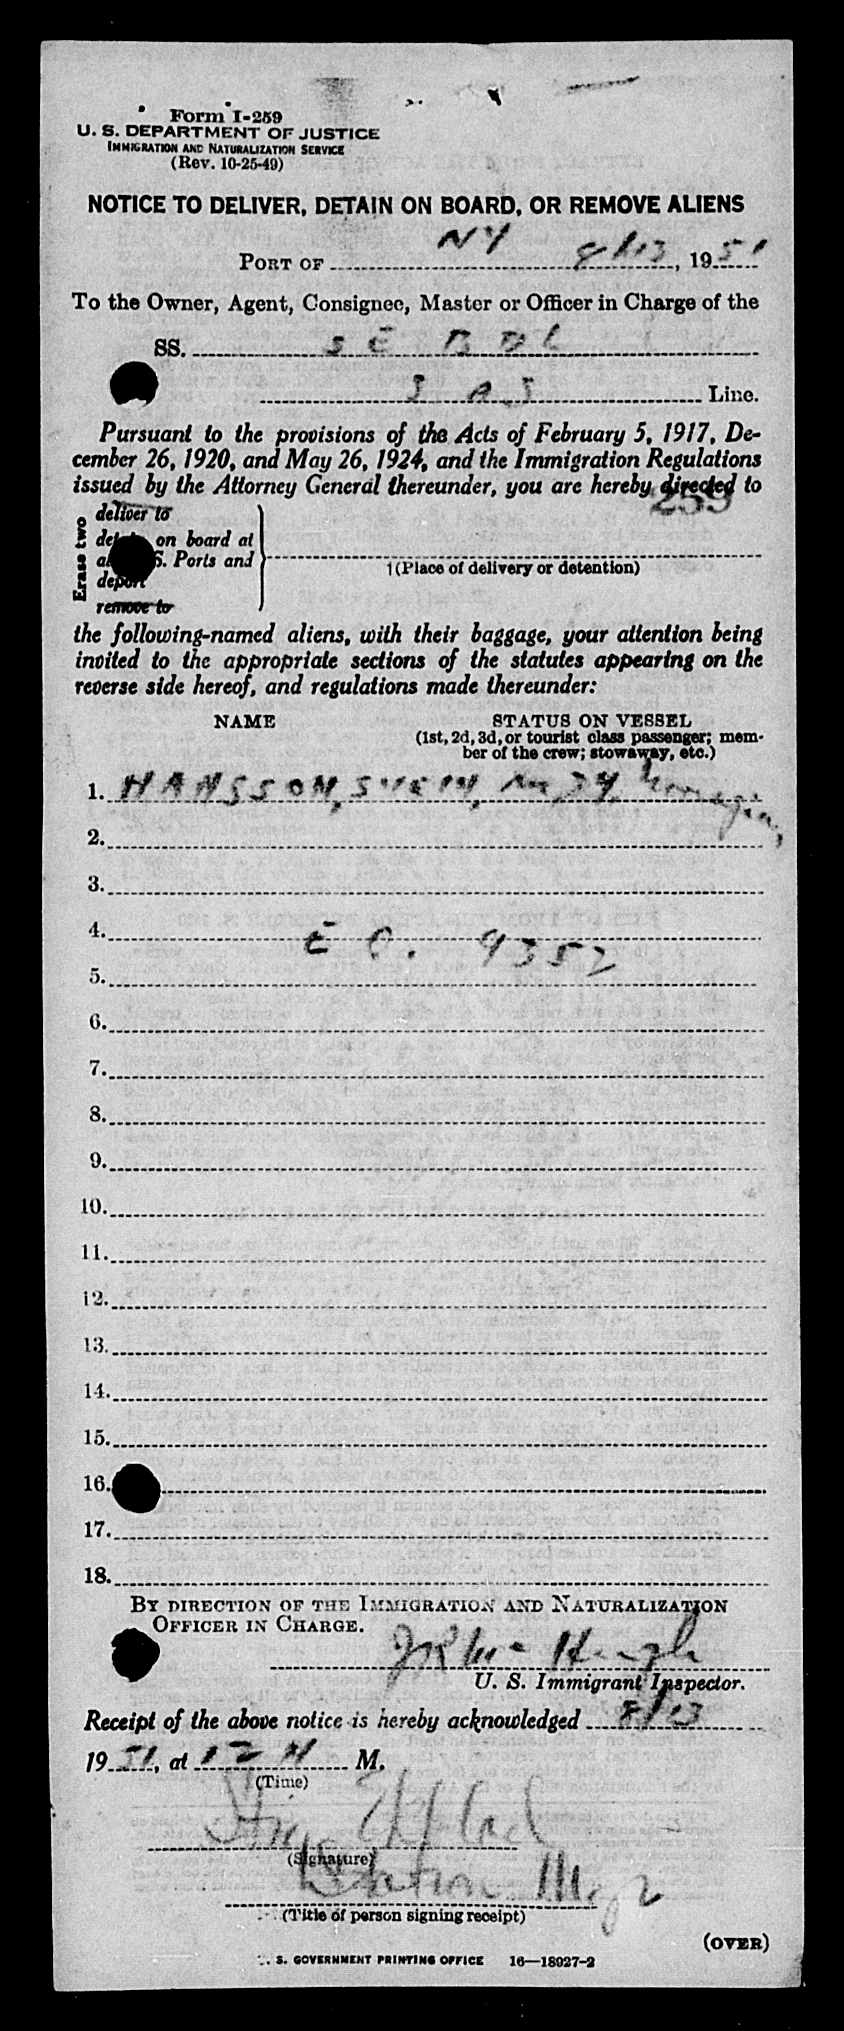 Form I-259
U. S. DEPARTMENT OF JUSTICE
IMMIGRATION AND NATURALIZATION SERVICE
(Rev. 10-25-49)
NOTICE TO DELIVER, DETAIN ON BOARD, OR REMOVE ALIENS
PORT OF NY 8/13, 1951
To the Owner, Agent, Consignee, Master or Officer in Charge of the
SS. SE BDL
S A S Line.
Pursuant to the provisions of the Acts of February 5, 1917, De-
cember 26, 1920, and May 26, 1924, and the Immigration Regulations
issued by the Attorney General thereunder, you are hereby directed to
259
Erase two
deliver to
on board at
S. Ports and
deport
remove to
†(Place of delivery or detention)
the following-named aliens, with their baggage, your attention being
invited to the appropriate sections of the statutes appearing on the
reverse side hereof, and regulations made thereunder:
NAME STATUS ON VESSEL
(1st, 2d, 3d, or tourist class passenger; mem-
ber of the crew; stowaway, etc.)
1. HANSSON, SVEIN, 34, Norwegian
2.
3.
4.
E O. 9352
5.
6.
7.
8.
9.
10.
11.
12.
13.
14.
15.
16.
17.
18.
BY DIRECTION OF THE IMMIGRATION AND NATURALIZATION
OFFICER IN CHARGE.
U. S. Immigrant Inspector.
Receipt of the above notice is hereby acknowledged 8/13
1951, at 12 N M.
(Time)
(Signature)
Station Mgr
(Title of person signing receipt)
(OVER)
S. GOVERNMENT PRINTING OFFICE 16—18027-2